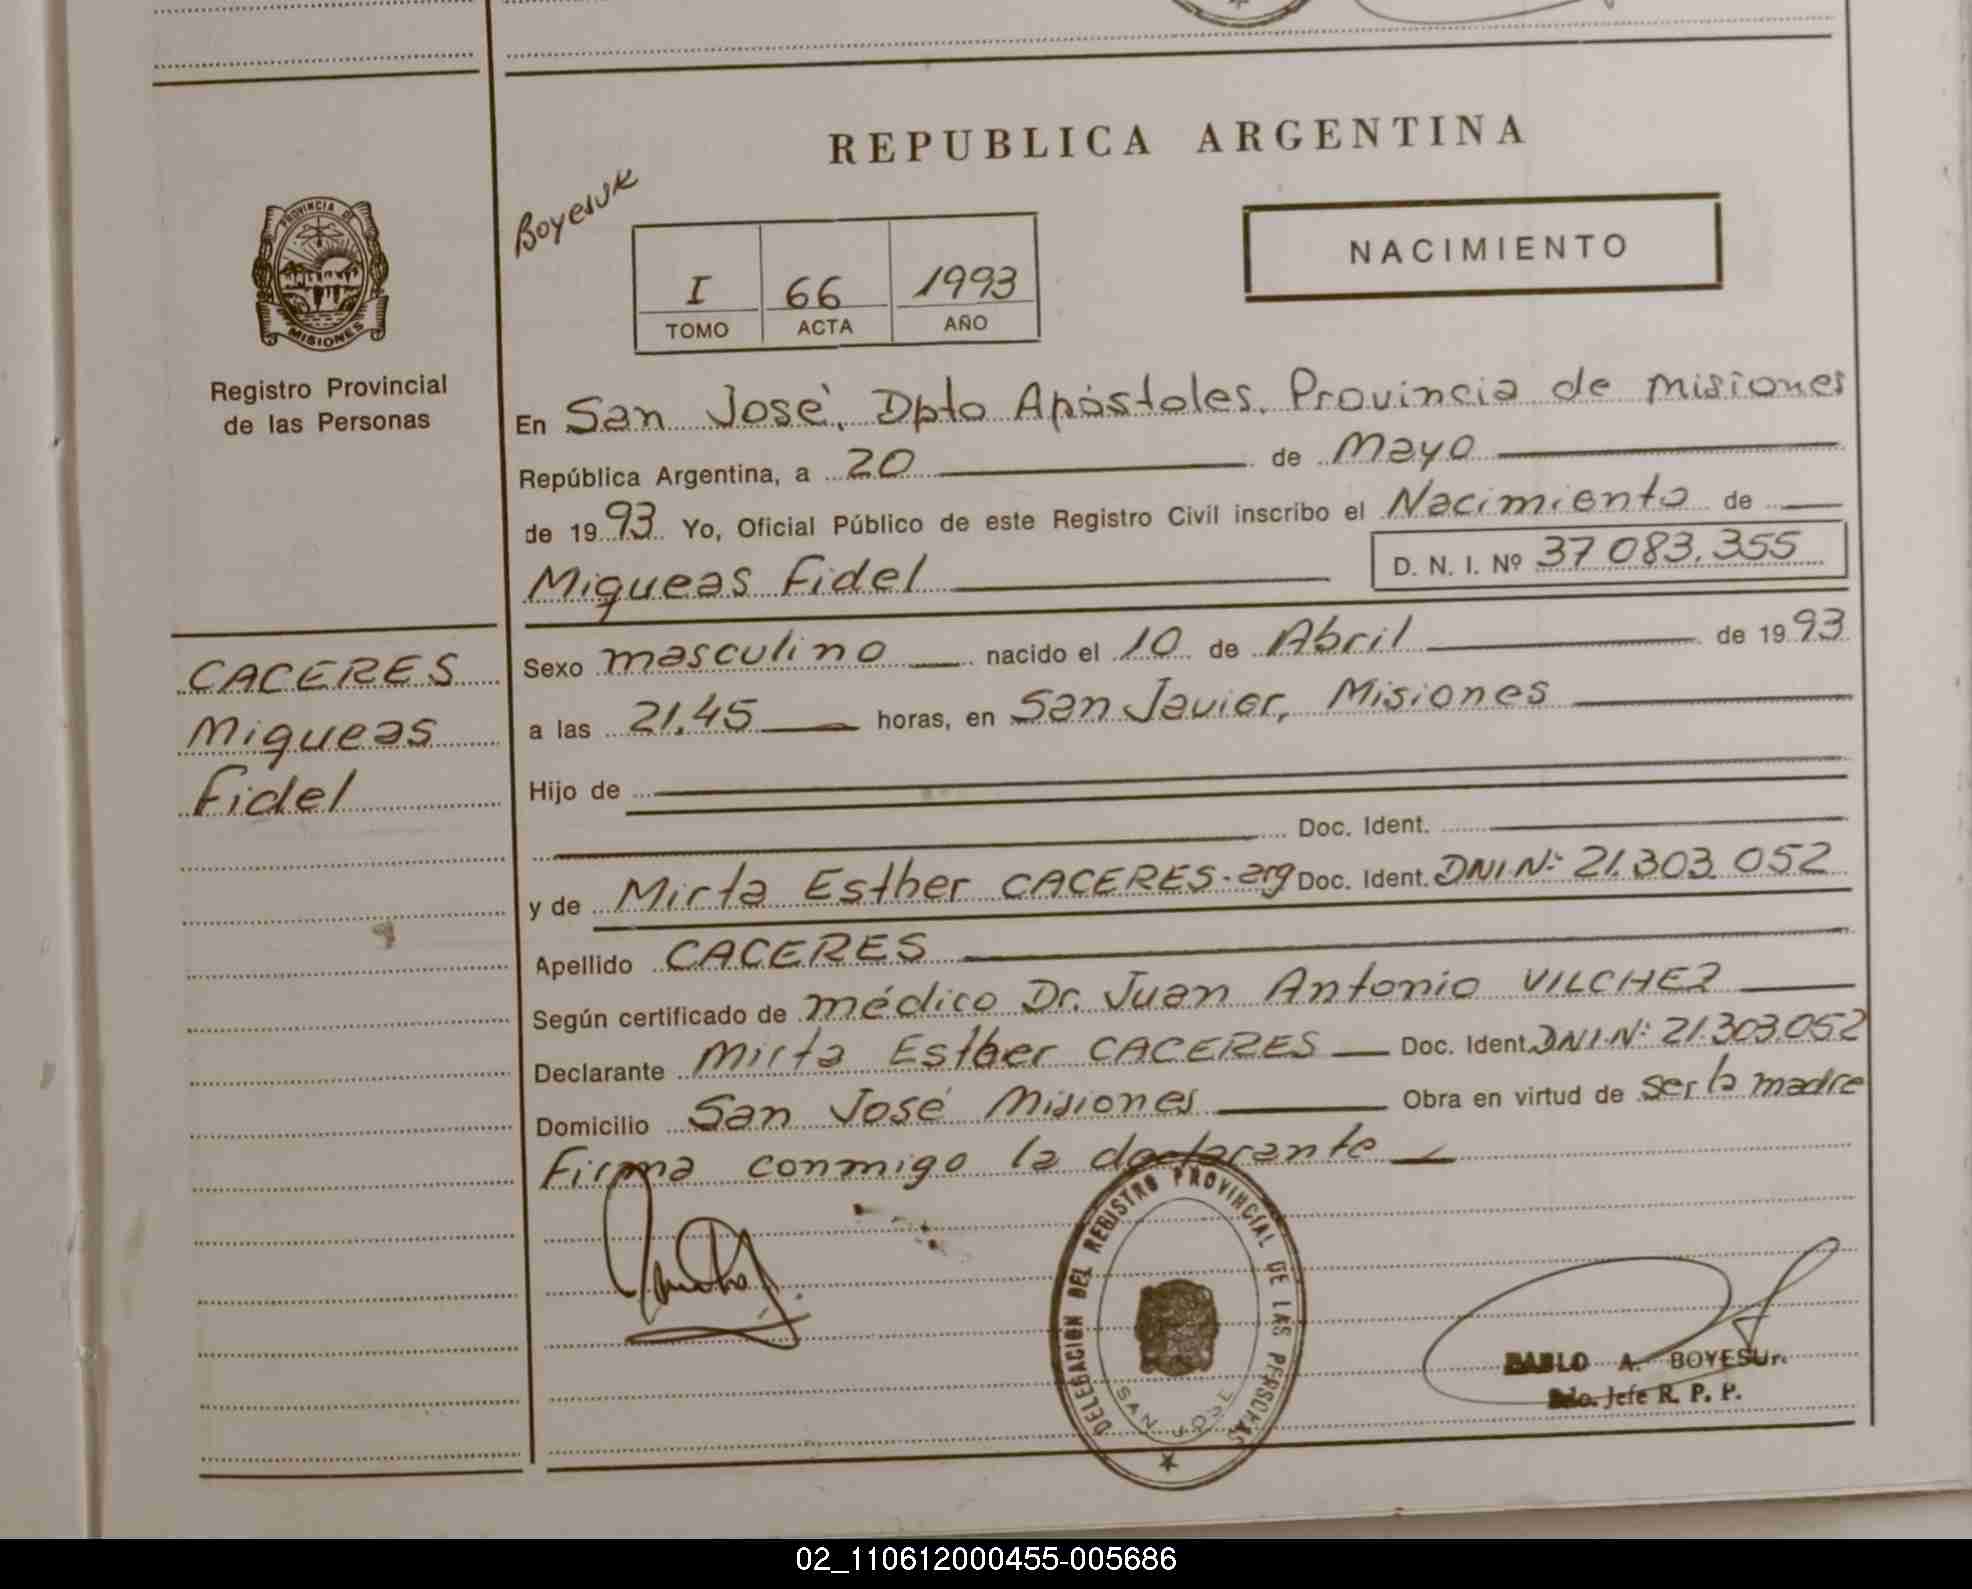 REPUBLICA ARGENTINA
Boyesuk
PROVINCIA DE
MISIONES
Registro Provincial
de las Personas
I 66 1993
TOMO ACTA AÑO
NACIMIENTO
En San José, Dpto Apóstoles, Provincia de Misiones
República Argentina, a 20 de Mayo
de 1993 Yo, Oficial Público de este Registro Civil inscribo el Nacimiento de
Miqueas Fidel D. N. I. Nº 37 083.355
CACERES
Miqueas
Fidel
Sexo masculino nacido el 10 de Abril de 1993
a las 21,45 horas, en San Javier, Misiones
Hijo de
Doc. Ident.
y de Mirta Esther CACERES-arg Doc. Ident. DNI Nº 21.303.052
Apellido CACERES
Según certificado de médico Dr. Juan Antonio VILCHEZ
Declarante Mirta Esther CACERES Doc. Ident. DNI Nº 21.303.052
Domicilio San José Misiones Obra en virtud de ser la madre
Firma conmigo la declarante
DELEGACION DEL REGISTRO PROVINCIAL DE LAS PERSONAS
SAN JOSE
PABLO A. BOYESUK
Jefe R. P. P.
02_110612000455-005686